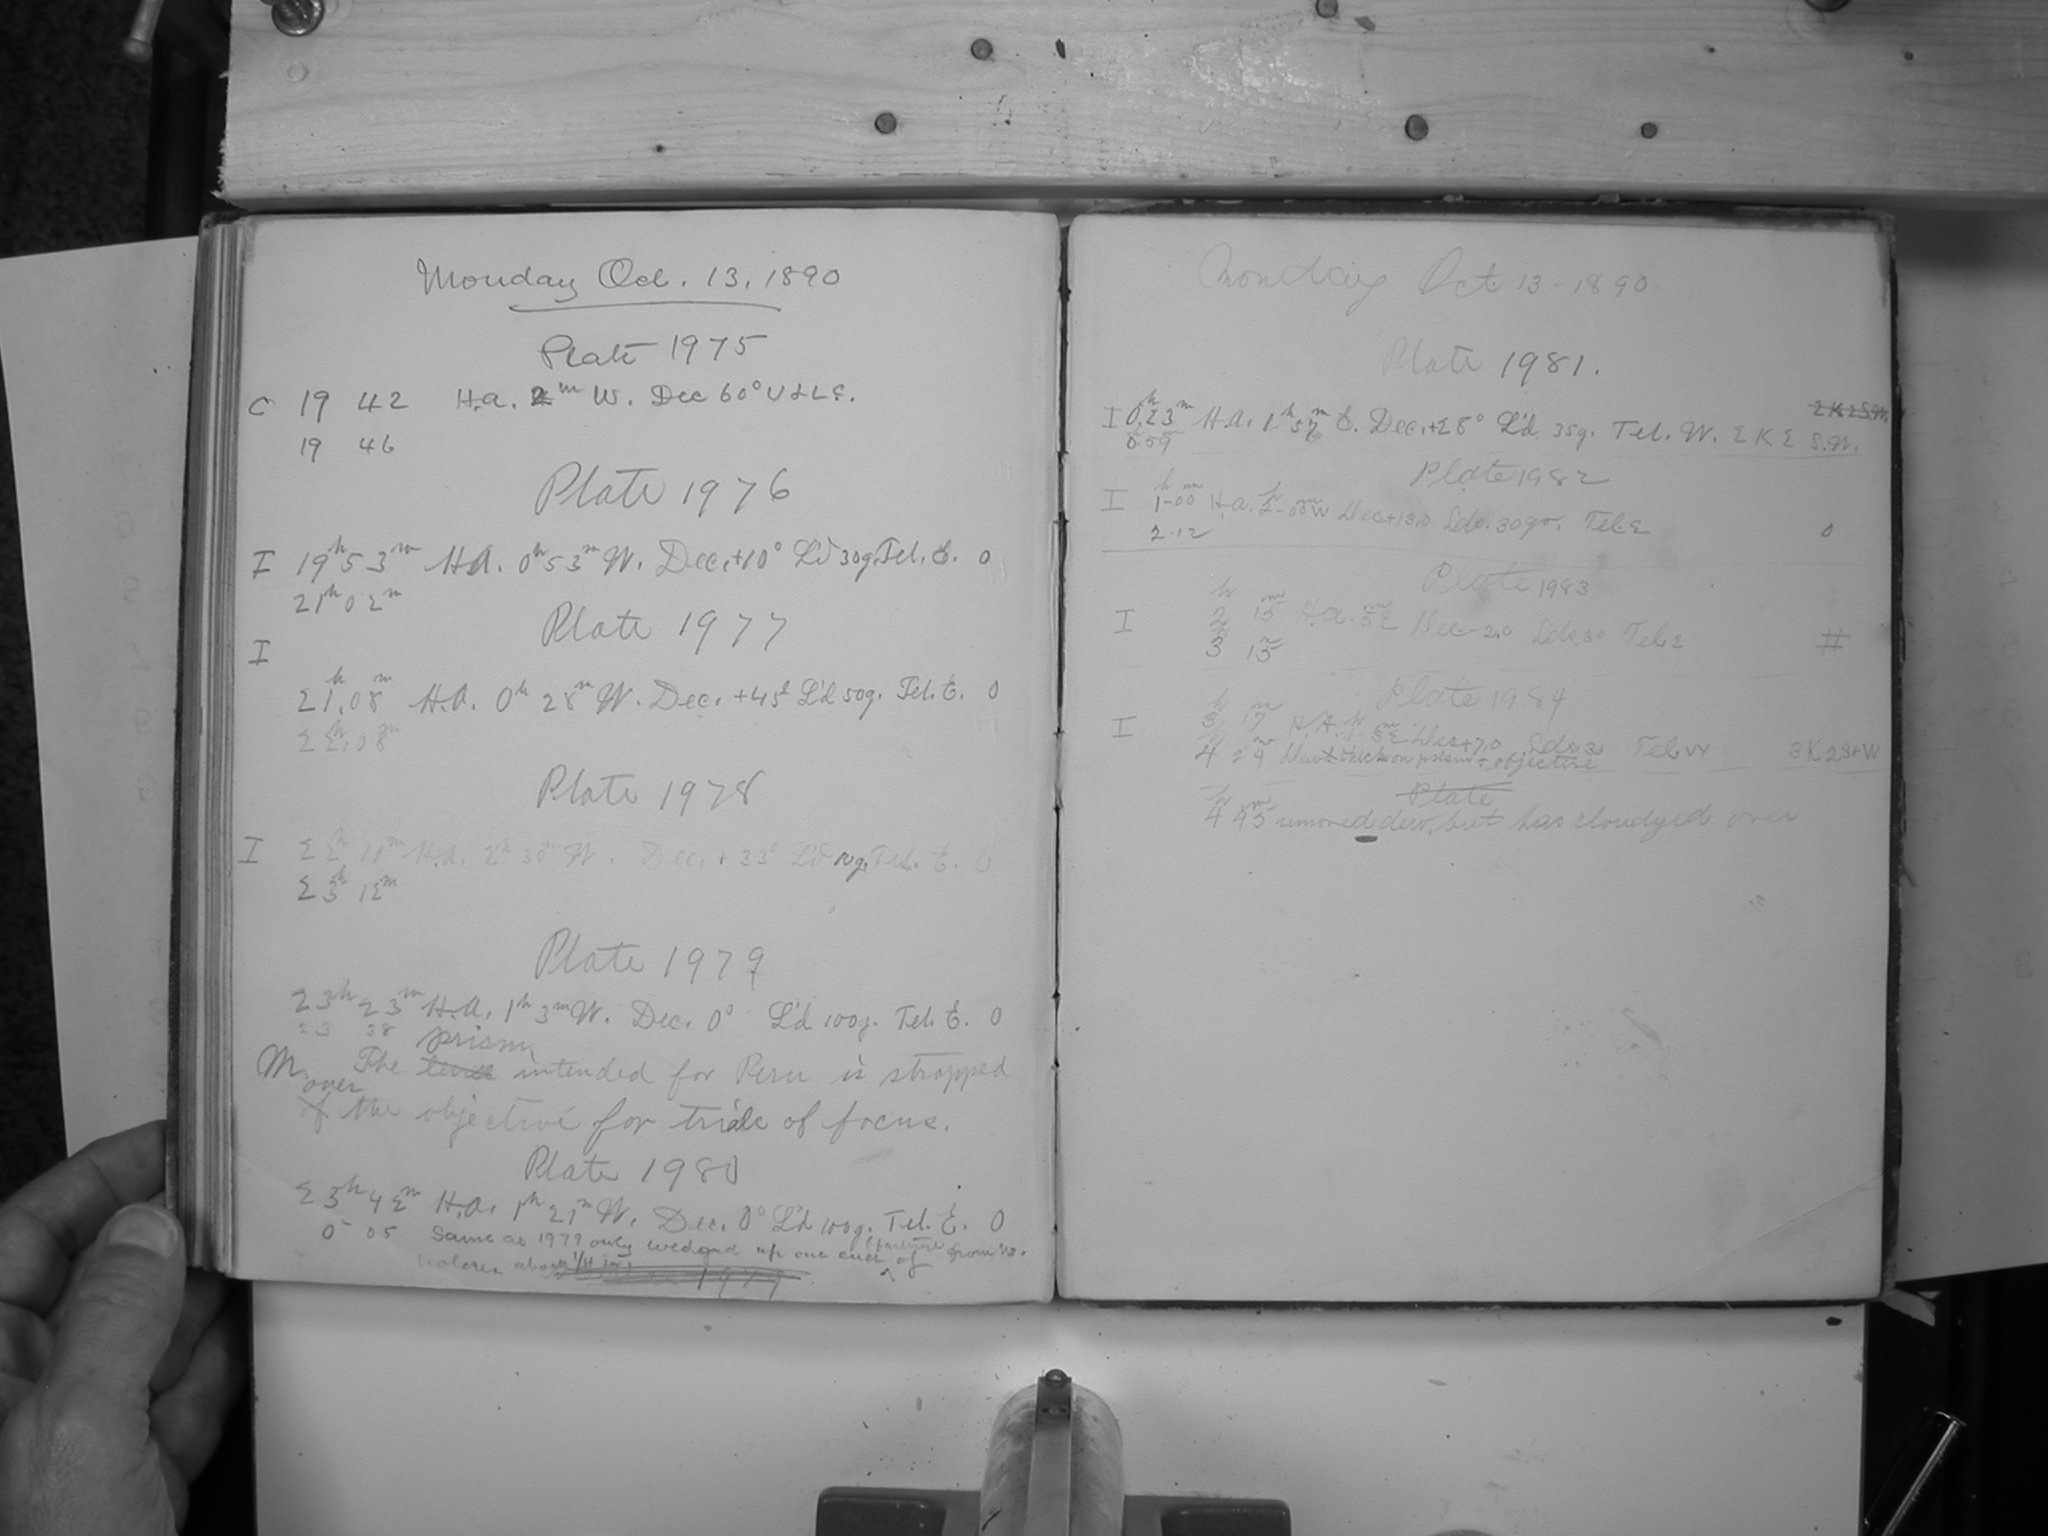 Monday Oct. 13, 1890
Plate 1975
C 19 42 H.a. 2m W. Dec 60° U & L C.
19 46
Plate 1976
I 19h 53m H.A. 0h 53m W. Dec. +10° L'd 30g. Tel. E. 0
21h 02m
Plate 1977
I
21h.08m H.A. 0h 28m W. Dec. +45° L'd 50g. Tel. E. 0
22h.08m
Plate 1978
I 22h 10m H.A. 2h 30m W. Dec. +33° L'd 10g. Tel. E. 0
23h 12m
Plate 1979
23h 23m H.A. 1h 3m W. Dec. 0° L'd 100g. Tel. E. 0
23 38 prism
M The intended for Peru is strapped
over
the objective for trial of focus.
Plate 1980
23h 42m H.A. 1h 21m W. Dec. 0° L'd 100g. Tel. E. 0
0 05 Same as 1979 only wedged up one end of (farthest from
about 1/4 in) 1979
Monday Oct 13-1890
Plate 1981.
2K2S.W.
I 0h.23m H.A. 1h 57m E. Dec. +28° L'd 35g. Tel. W. 2K2 S.W.
0.59
Plate 1982
I 1h-00m H.a. 2h-00m W Dec+13.0 Ldo. 30gr. Tel E 0
2.12
Plate 1983
I 2h 15m H.a. 5m E Dec-2.0 Lds. 30 Tel E #
3 15m
Plate 1984
I 3h 17m H.A. 1h 5m E Dec+7.0 Lds. 3 Tel W 3K2S+W
4 29m Dew thick on prism + objective
Plate
4h 45m removed dew, but has cloudyed over